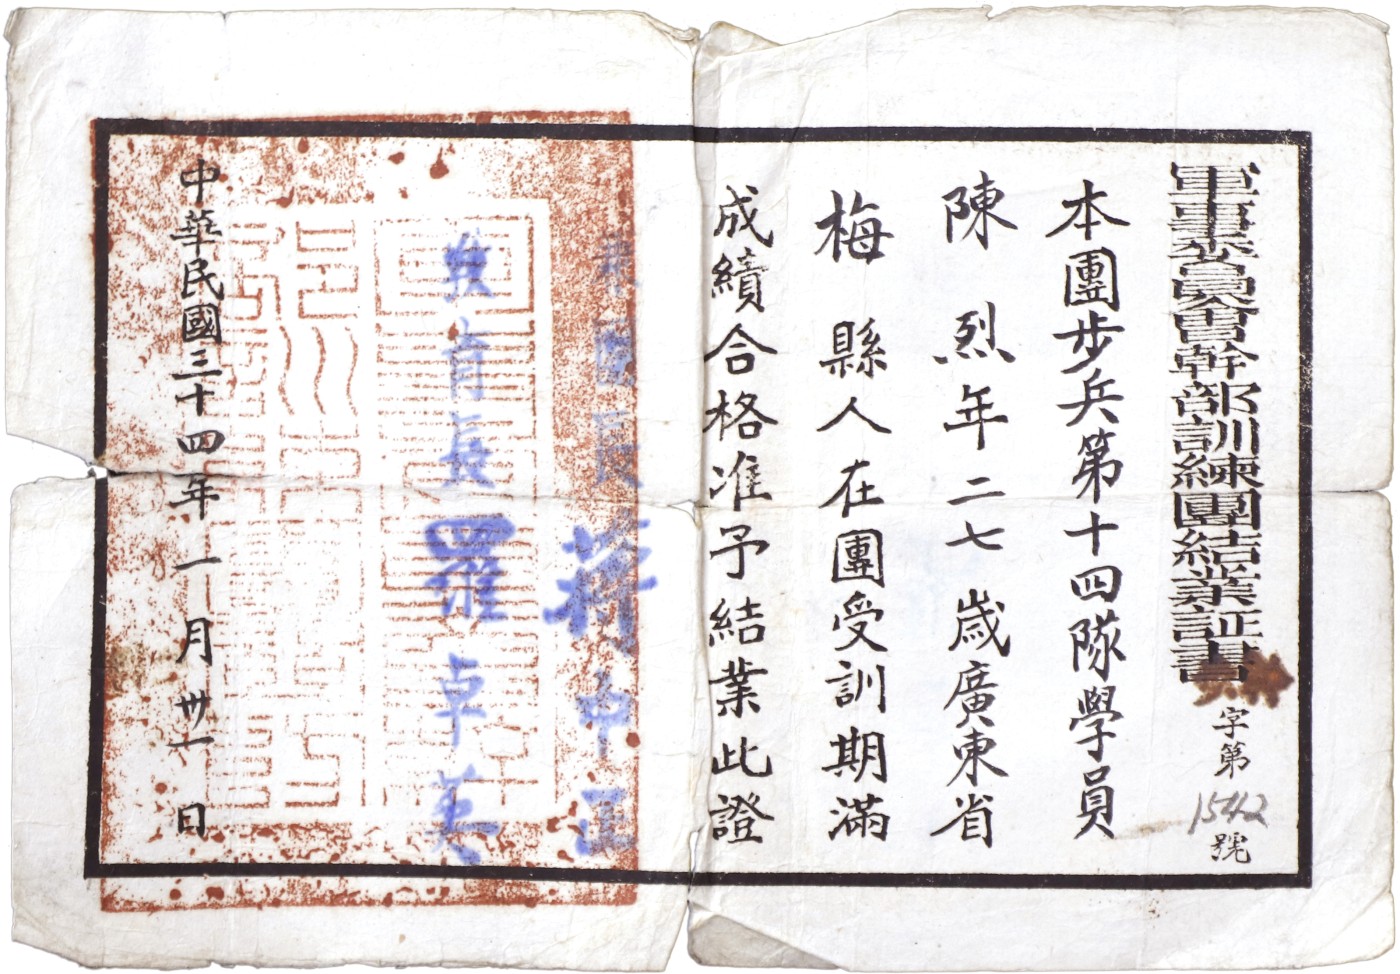 軍事委員會幹部訓練團結業証書
字第1542號
本團步兵第十四隊學員
陳烈年二七歲廣東省
梅縣人在團受訓期滿
成績合格准予結業此證
團長
蔣中正
教育長
羅卓英
中華民國三十四年一月卅一日